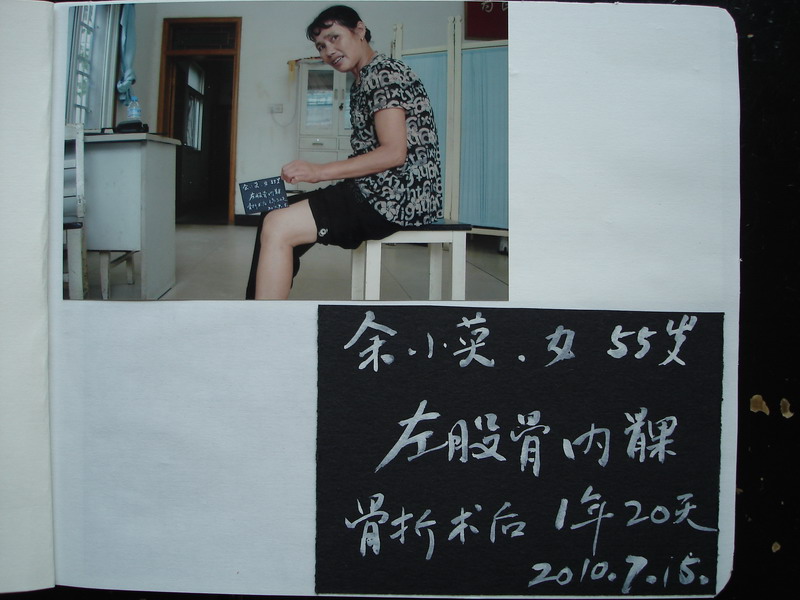 左股骨内髁
余小英.女 55岁
左股骨内髁
骨折术后 1年20天
2010.7.15.